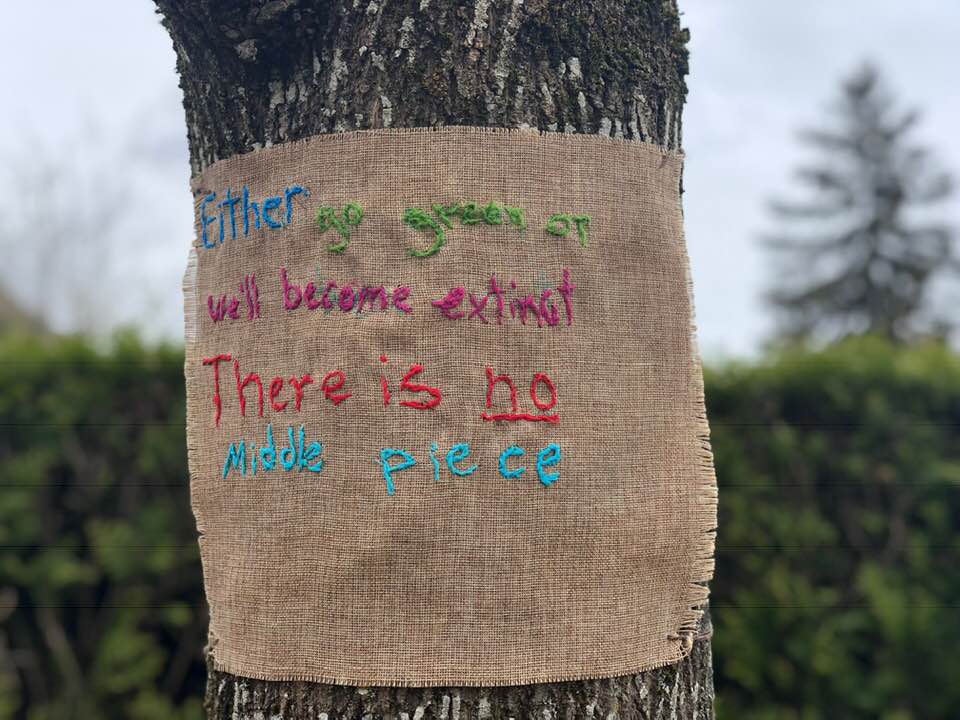 Either go green or
we'll become extinct
There is no
Middle piece